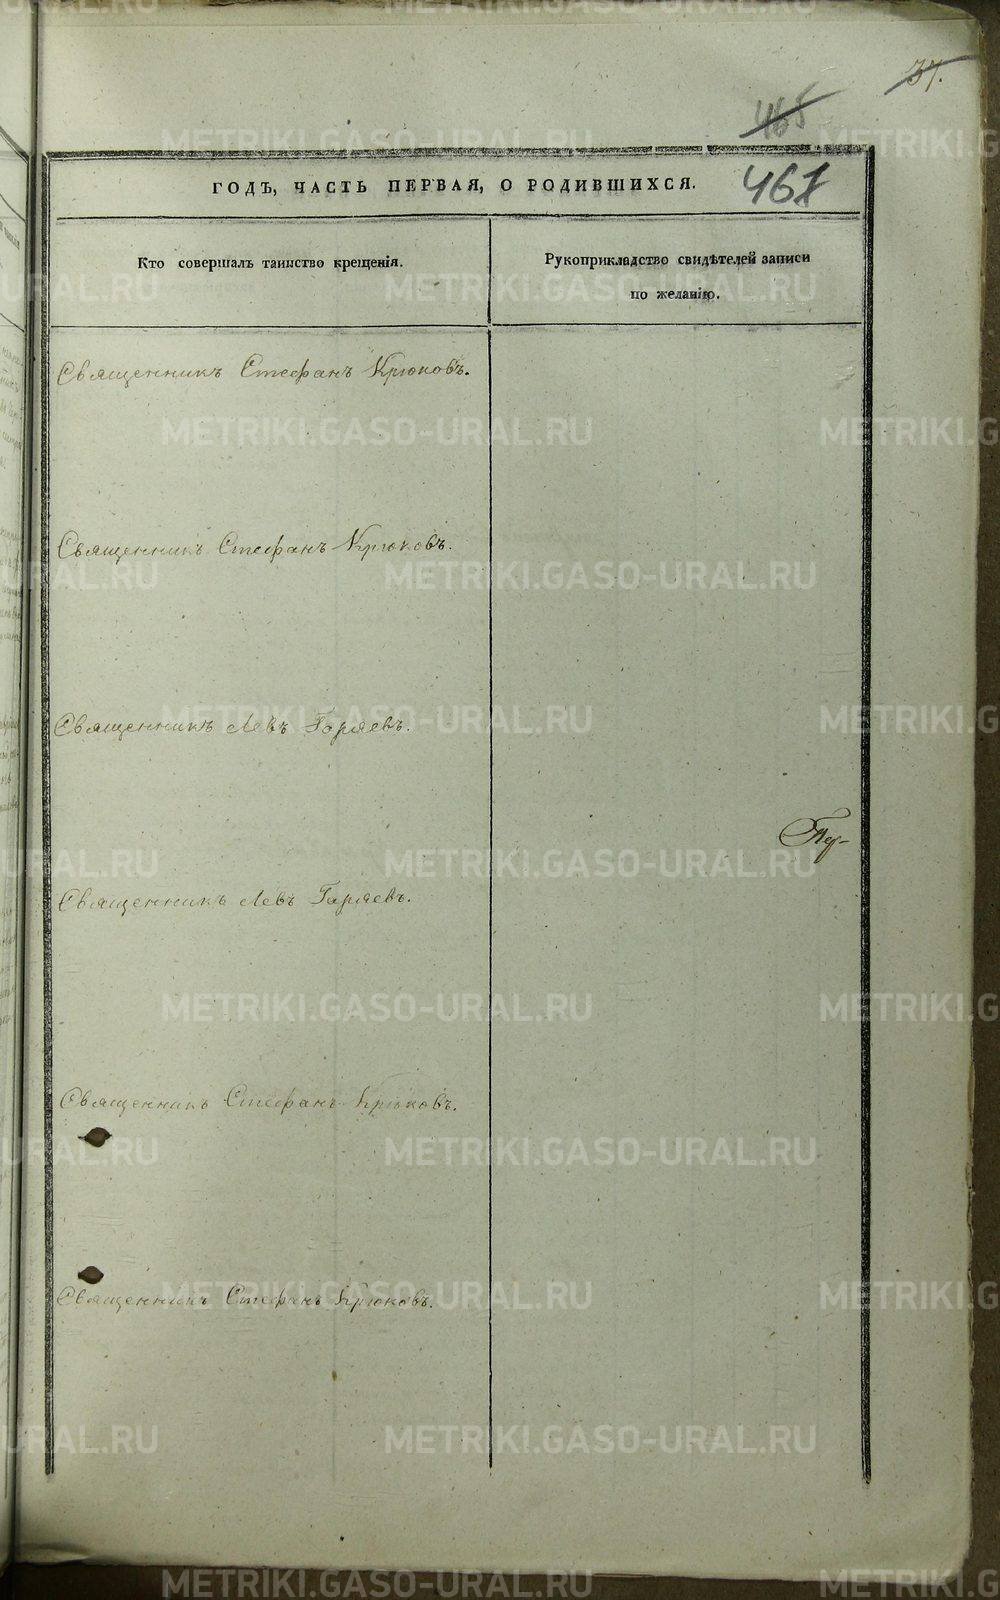 37.
465
467
ГОДЪ, ЧАСТЬ ПЕРВАЯ, О РОДИВШИХСЯ.
Кто совершалъ таинство крещенія.
Рукоприкладство свидѣтелей записи
по желанію.
Священникъ Стефанъ Крюковъ.
Священникъ Стефанъ Крюковъ.
Священникъ Левъ Горяевъ.
Священникъ Левъ Горяевъ.
Священникъ Стефанъ Крюковъ.
Священникъ Стефанъ Крюковъ.
METRIKI.GASO-URAL.RU